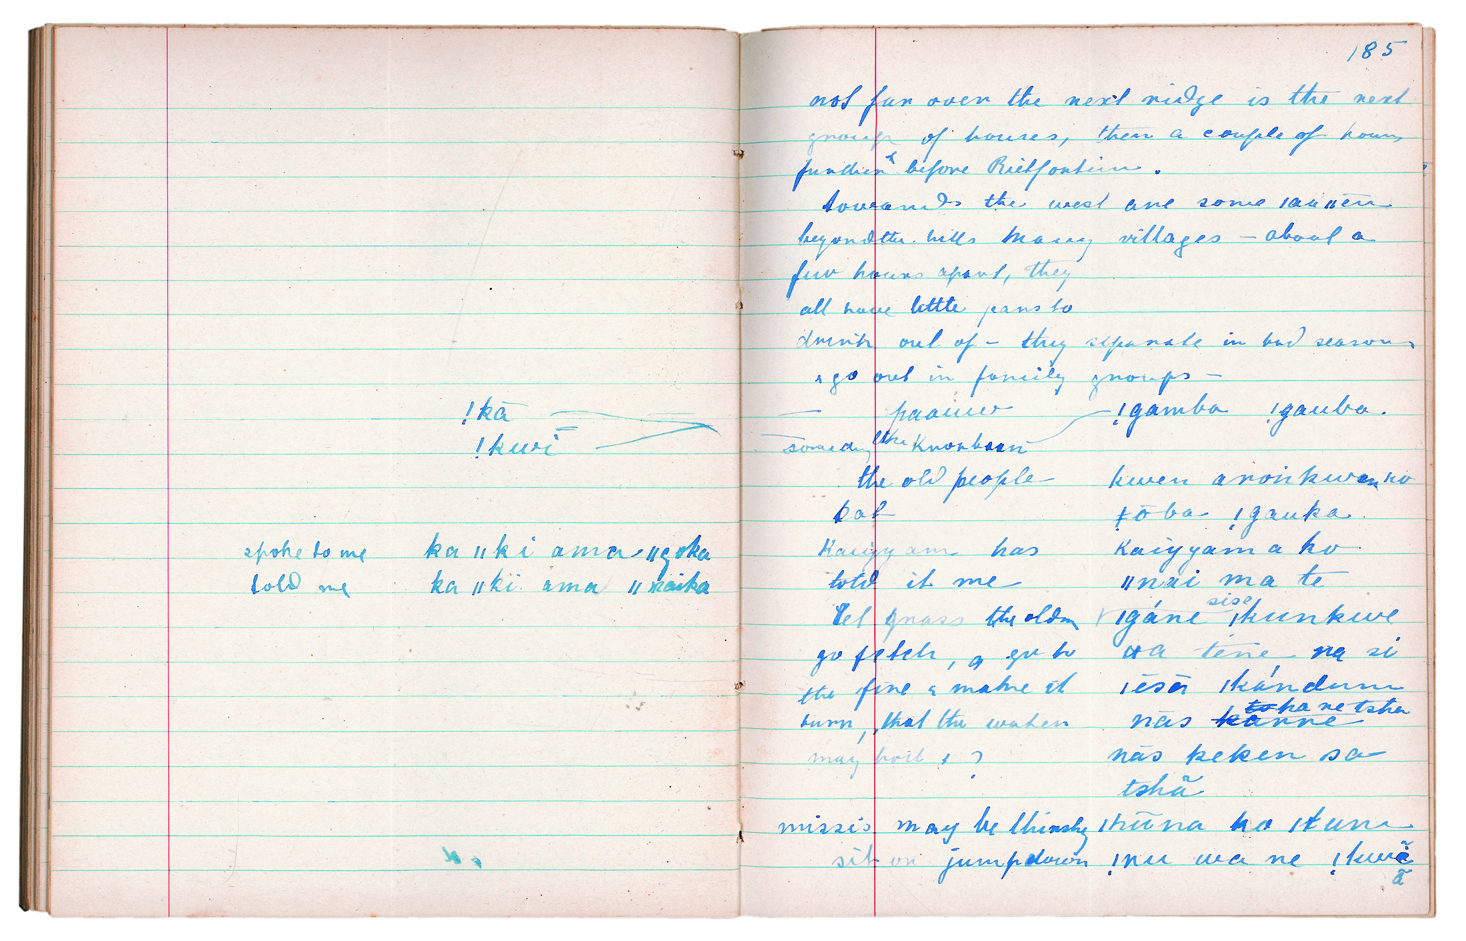 !kā
!kwi
spoke to me ka ǁki ama ǁgoka
told me ka ǁki ama ǁkaika
185
not far over the next ridge is the next
group of houses, then a couple of hours
further before Rietfontein.
towards the west are some ǀauǁēn
beyond the hills many villages – about a
few hours apart, they
all have little pans to
drink out of – they separate in bad seasons
& go out in family groups –
— paauw !gamba !gauba.
someday the knorhaan
the old people kwen aroikwenko
eat ǂōba !gauka.
Kaiyyam has Kaiyyam a ko
told it me ǁnai ma te
let grass the old m ǀgáne sise ǀkunkwe
go fetch, & go to ua tene na si
the fire & make it ǀēsā ǀkándum
burn, that the water nās to ha ne tsha
may boil, ? nās keken sa
tshā
missis may be thirsty ǀkūna ko ǀkum
sit on jump down !nu wa ne !kwā
ā